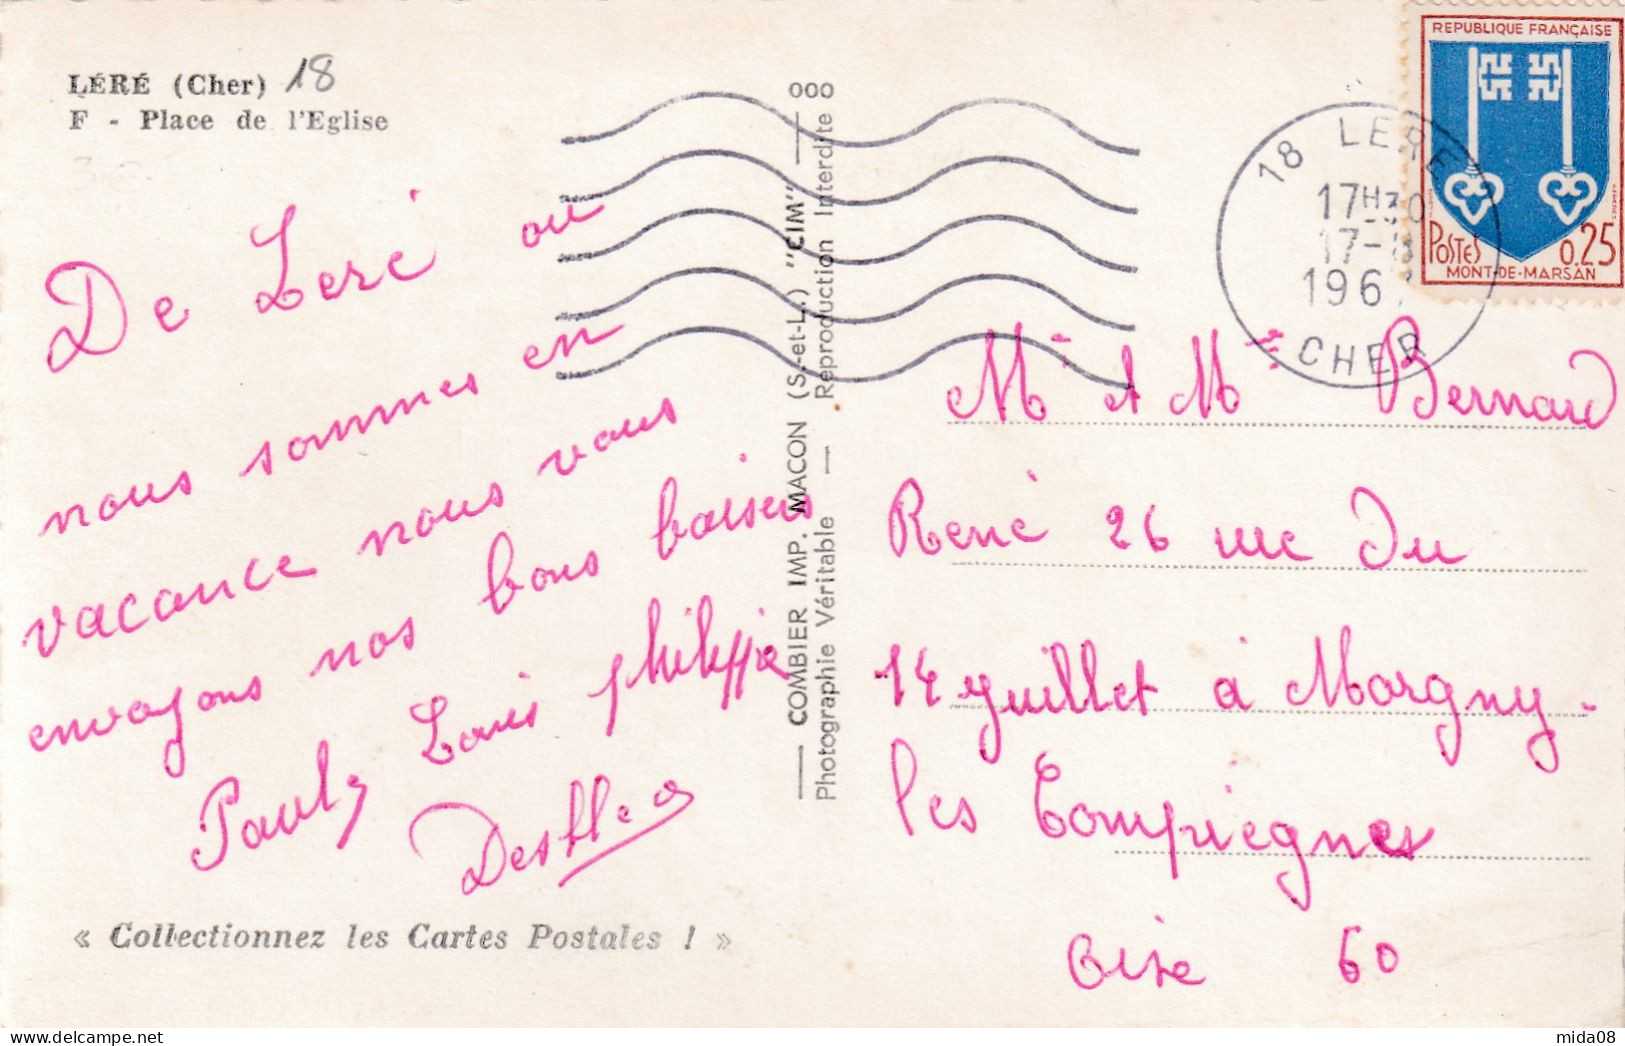 LÉRÉ (Cher) 18
F - Place de l'Eglise
De Leré ou
nous sommes en
vacance nous vous
envoyons nos bons baisers
Louis philippe
« Collectionnez les Cartes Postales ! »
COMBIER IMP. MACON (S.-et-L.) "CIM"
Photographie Véritable — Reproduction Interdite
REPUBLIQUE FRANÇAISE
POSTES 0.25
MONT-DE-MARSAN
18 LERE
17H30
17-8
196
CHER
Mr et Mme Bernard
René 26 rue du
14 juillet à Margny-
les Compiegnes
Oise 60
mida08